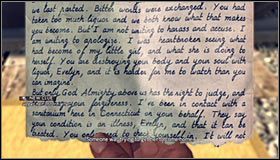 we last parted. Bitter words were exchanged. You had
taken too much liquor and we both know what that makes
you become. But I am not writing to harass and accuse. I
am writing to apologize. I was heartbroken seeing what
had become of my little girl and what she is doing to
herself. You are destroying your body, and your soul with
liquor, Evelyn, and it is harder for me to watch than you
can imagine.
But only God Almighty above us has the right to judge, and
your forgiveness. I've been in contact with
sanitarium here in Connecticut on your behalf. They say
your condition is an illness, Evelyn, and that it can be
treated. You only need to check yourself in. It will not